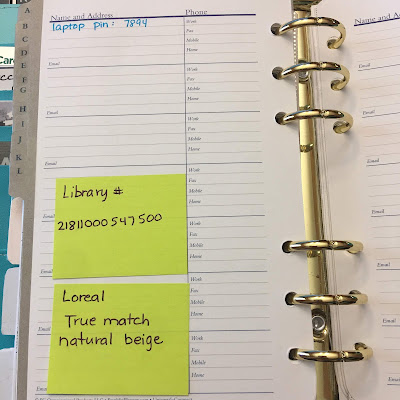 A
B
C
D
E
F
G
H
I
J
K
L
Name and Address Phone
laptop pin: 7894
Work
Fax
Mobile
Home
Email
Work
Fax
Mobile
Home
Email
Work
Fax
Mobile
Home
Email
Work
Fax
Mobile
Home
Library #
21811000547500
Work
Fax
Mobile
Home
Email
Work
Fax
Mobile
Home
Loreal
True match
natural beige
Email
Work
Fax
Mobile
Home